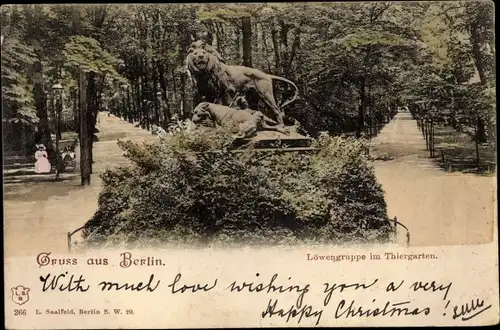 Gruss aus Berlin.
Löwengruppe im Thiergarten.
With much love wishing you a very
Happy Christmas!
266 L. Saalfeld, Berlin S. W. 29.